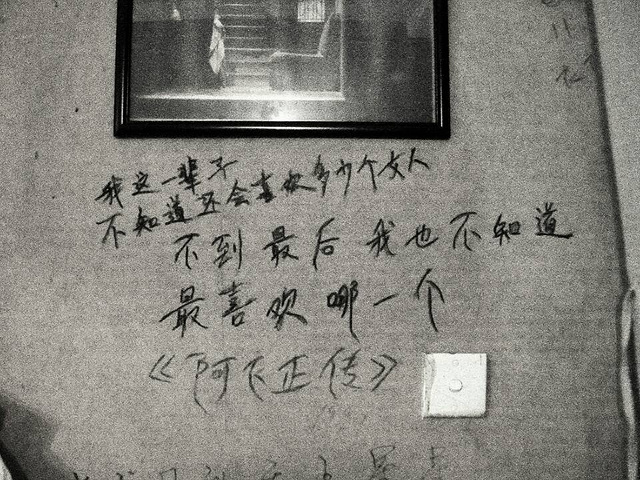 我这一辈子
不知道还会喜欢多少个女人
不到最后我也不知道
最喜欢哪一个
《阿飞正传》